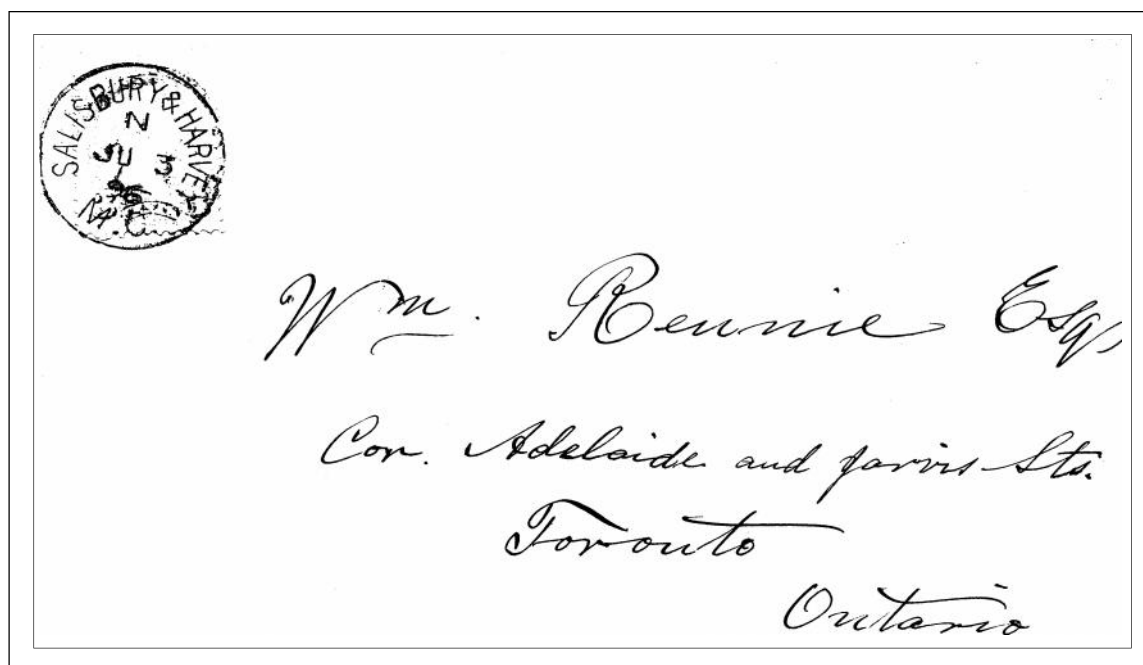 SALISBURY & HARVEY
N
JU 3
Wm. Rennie Esq,
Cor. Adelaide and Jarvis Sts.
Toronto
Ontario